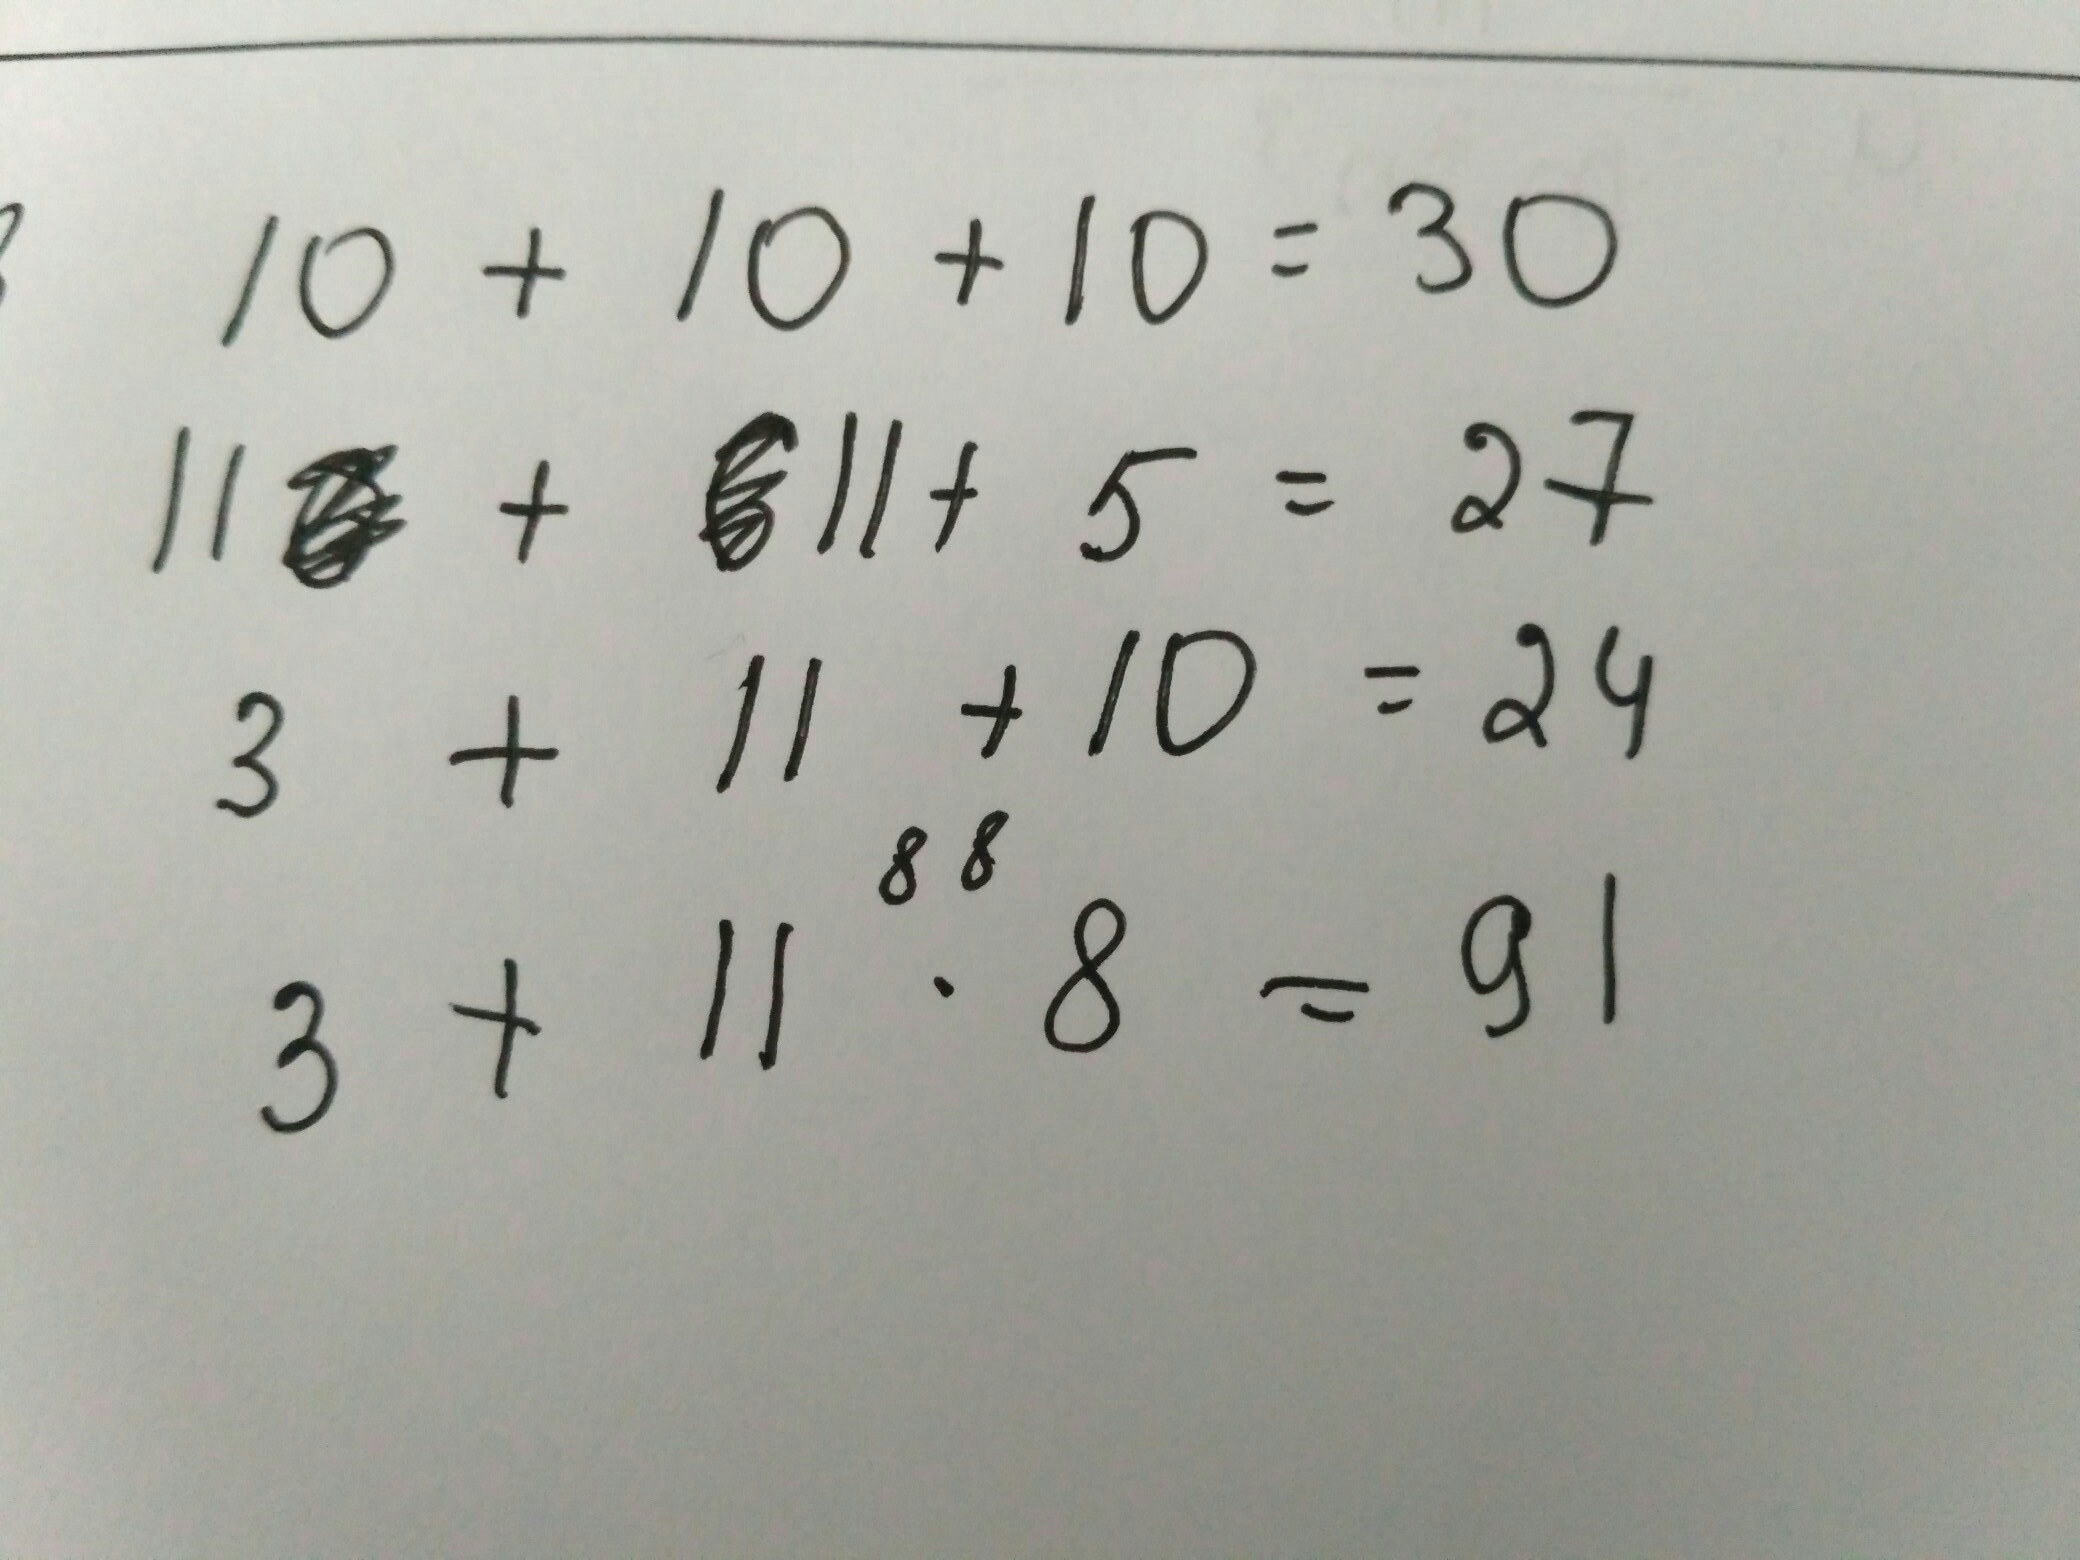 10 + 10 + 10 = 30
11 + 11 + 5 = 27
3 + 11 + 10 = 24
8 8
3 + 11 · 8 = 91